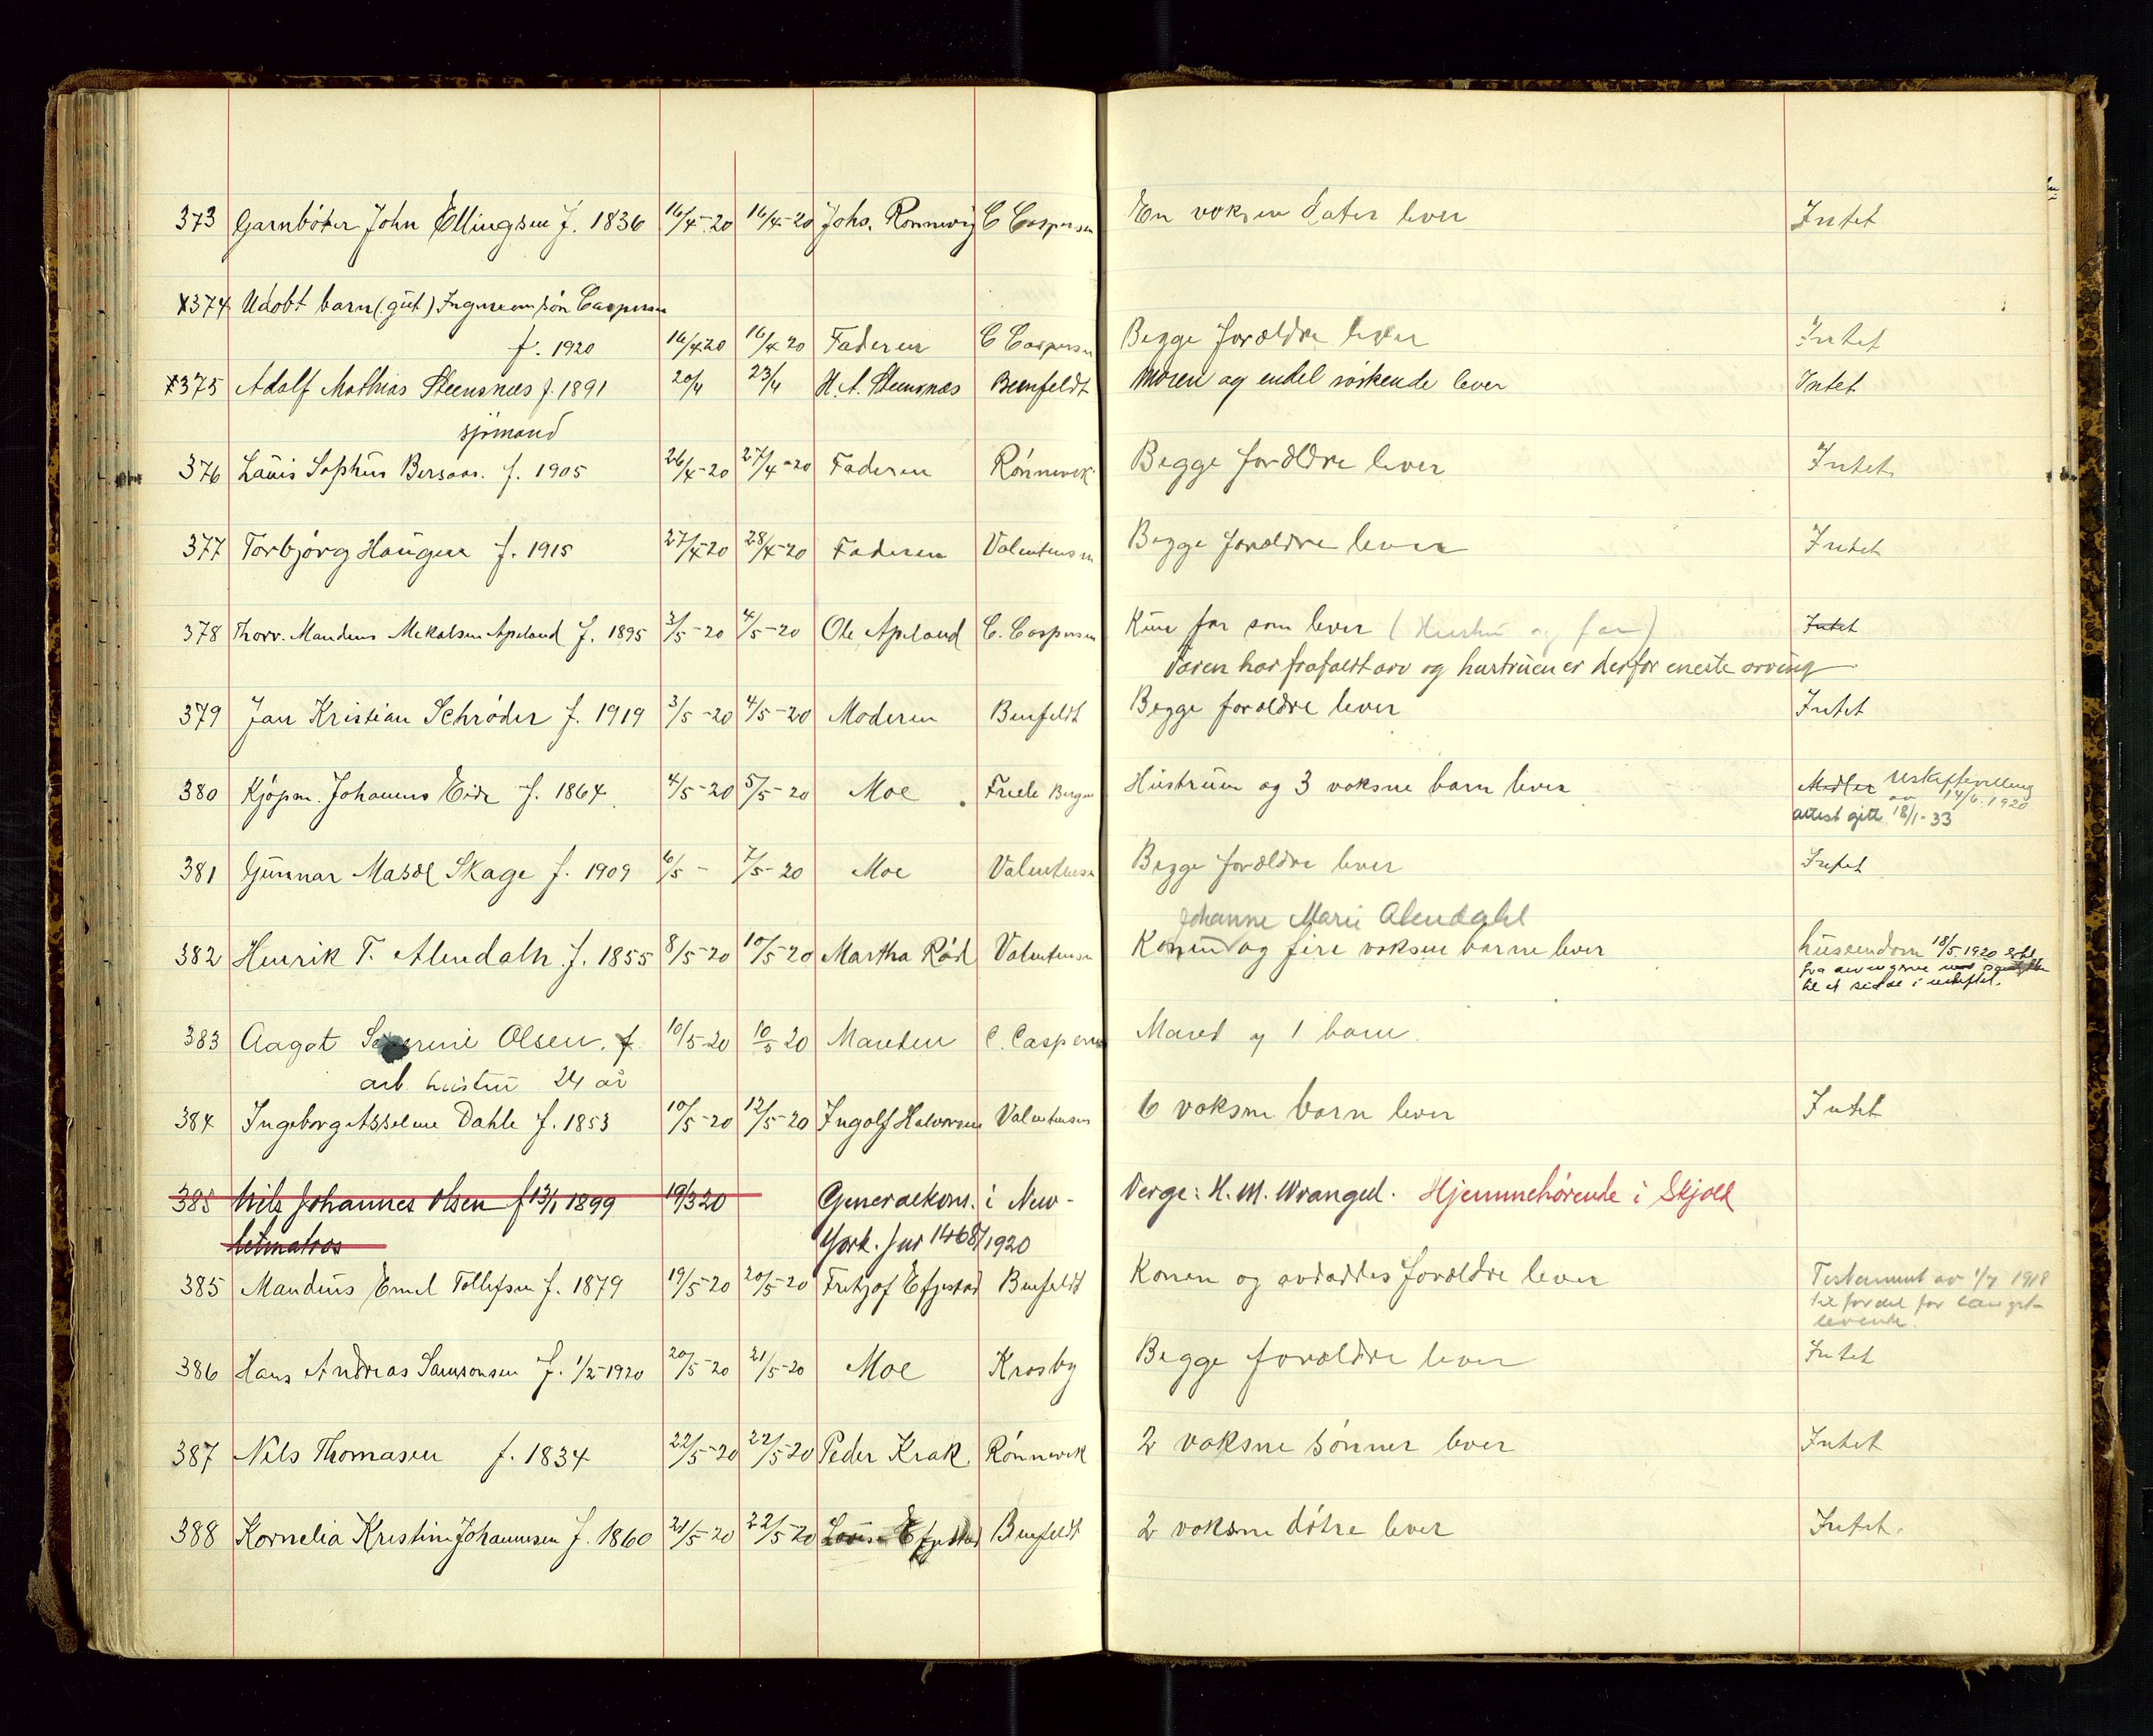 373 Garnbøter John Ellingsen f. 1836 16/4-20 16/4-20 Johs. Rønnevig C Caspersen En voksen dater lever Intet
x374 Udøbt barn (gut) Ingvremsøn Caspersen
f. 1920 16/4 20 16/4 20 Faderen C Caspersen Begge forældre lever Intet
x375 Adolf Mathias Steensnæs f. 1891 20/4 23/4 H. A. Steensnæs Benfeldt Moren og endel søskende lever Intet
sjømand
376 Lauis Sophus Bersaas. f. 1905 26/4-20 27/4-20 Faderen Rønnevik Begge forældre lever Intet
377 Torbjørg Haugen f. 1915 27/4-20 28/4-20 Faderen Valentinsen Begge forældre lever Intet
378 Thorv. Mandius Mekalsen Apeland f. 1895 3/5-20 4/5-20 Ole Apeland C. Caspersen Kun far som lever (Hustru og far) Intet
Faren har frafaldt arv og hustruen er derfor eneste arving
379 Jan Kristian Schrøder f. 1919 3/5-20 4/5-20 Moderen Benfeldt Begge forældre lever Intet
380 Kjøpm. Johannes Eide f. 1864 4/5-20 5/5-20 Moe Friele Bergen Hustruen og 3 voksne barn lever Midler Uskiftevilling
av 14/6.1920
attest gitt 18/1-33
381 Gunnar Masdl Skage f. 1909 6/5 - 7/5-20 Moe Valentinsen Begge forældre lever Intet
Johanne Marie Alendahl
382 Henrik T. Alendalh f. 1855 8/5-20 10/5-20 Martha Rød Valentinsen Konen og fire voksen barne lever Huseiendom 18/5.1920 Erkl.
fra arvingerne
til at sidde i uskiftet.
383 Aagot Severine Olsen. f 10/5-20 10/5 20 Manden C. Caspersen Mand og 1 barn
arb. hustru 24 år
384 Ingeborg Asseline Dahle f. 1853 10/5-20 12/5-20 Ingolf Halvorsen Valentinsen 6 voksne barn lever Intet
385 Nils Johannes Olsen f 13/1 1899 19/3 20 Generalkons. i New- Verge: H. M. Wrangel. Hjemmehørende i Skjold
letmatros York. Jnr 1468/1920
385 Mandius Emil Tollefsen f. 1879 19/5-20 20/5-20 Fritjof Efjestad Benfeldt Konen og avdødes forældre lever Testament av 1/7 1918
til fordel for længst-
levende.
386 Hans Andreas Samsonsen f. 1/2-1920 20/5-20 21/5-20 Moe Krosby Begge forældre lever Intet
387 Nils Thomasen f. 1834 22/5-20 22/5-20 Peder Krak Rønnevik 2 voksne sønner lever Intet
388 Kornelia Kristine Johannesen f. 1860 21/5-20 22/5-20 Lovise Efjestad Benfeldt 2 voksne døtre lever Intet.